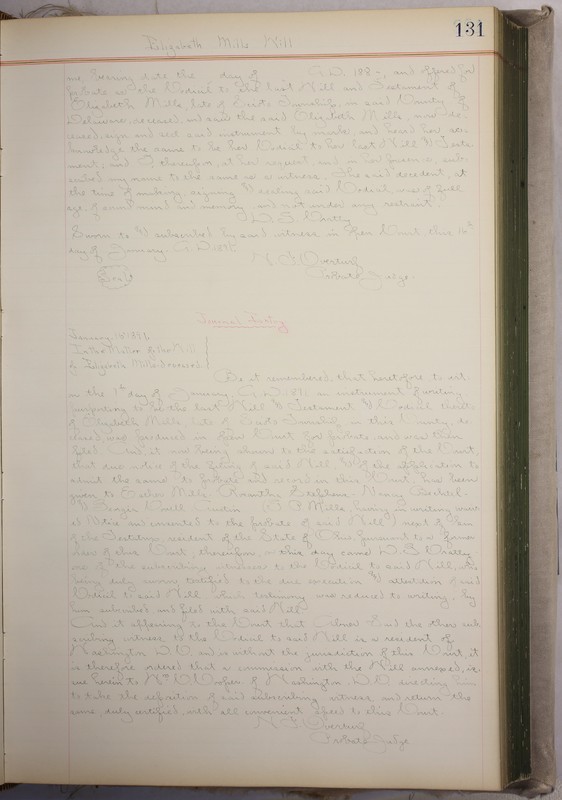 131
Elizabeth Mills Will
me, bearing date the day of A.D. 188-, and offered for
probate as the Codicil to the last Will and Testament of
Elizabeth Mills, late of Scioto Township, in said County of
Delaware, deceased, and said the said Elizabeth Mills, now de-
ceased, sign and seal said instrument by mark, and heard her ac-
knowledge the same to be her Codicil to her last Will & Testa-
ment; and I thereafter, at her request, and in her presence, sub-
scribed my name to the same as a witness. The said decedent, at
the time of making, signing & sealing said Codicil, was of full
age, of sound mind and memory, and not under any restraint.
Sworn to & subscribed by said witness in open Court, this 16th
day of January A.D. 189
N. F. Overturf
Probate Judge.
Seal
Journal Entry
January 16
In the Matter of the Will
of Elizabeth Mills Deceased
Be it remembered, that heretofore to wit:
on the 1st day of January A.D. 189 an instrument of writing
purporting to be the last Will & Testament & Codicil thereto
of Elizabeth Mills late of Scioto Township in this County, de-
ceased, was produced in open Court for probate, and was then
filed. And it now being shown to the satisfaction of the Court,
that due notice of the filing of said Will, & of the application to
admit the same to probate and record in this Court have been
given to Mills, Stephens, Nancy Bechtel,
(O. P. Mills, having in writing waiv-
ed Notice and consented to the probate of said Will) next of kin
of the Testatrix, resident of the State of Ohio pursuant to a former
order of this Court, therefore, on this day came W. S.
one of the subscribing witnesses to the Codicil to said Will, who
being duly sworn, testified to the due execution & attestation of said
Codicil to said Will which testimony was reduced to writing, by
him subscribed and filed with said Will.
And it appearing to the Court that the other sub-
scribing witness to the Codicil to said Will is a resident of
Washington D.C. and is without the jurisdiction of this Court, it
is therefore ordered that a commission with the Will annexed, is-
sue herein to Wm. Cooper of Washington D.C. directing him
to take the deposition of said subscribing witness, and return the
same, duly certified, with all convenient speed to this Court.
N. F. Overturf
Probate Judge